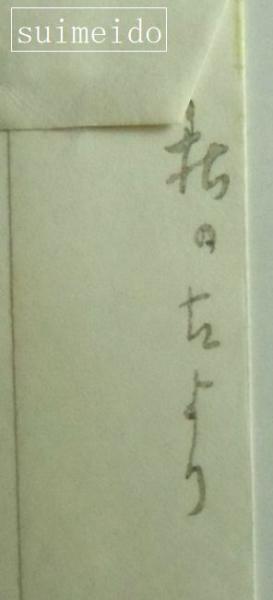 suimeido
のたより